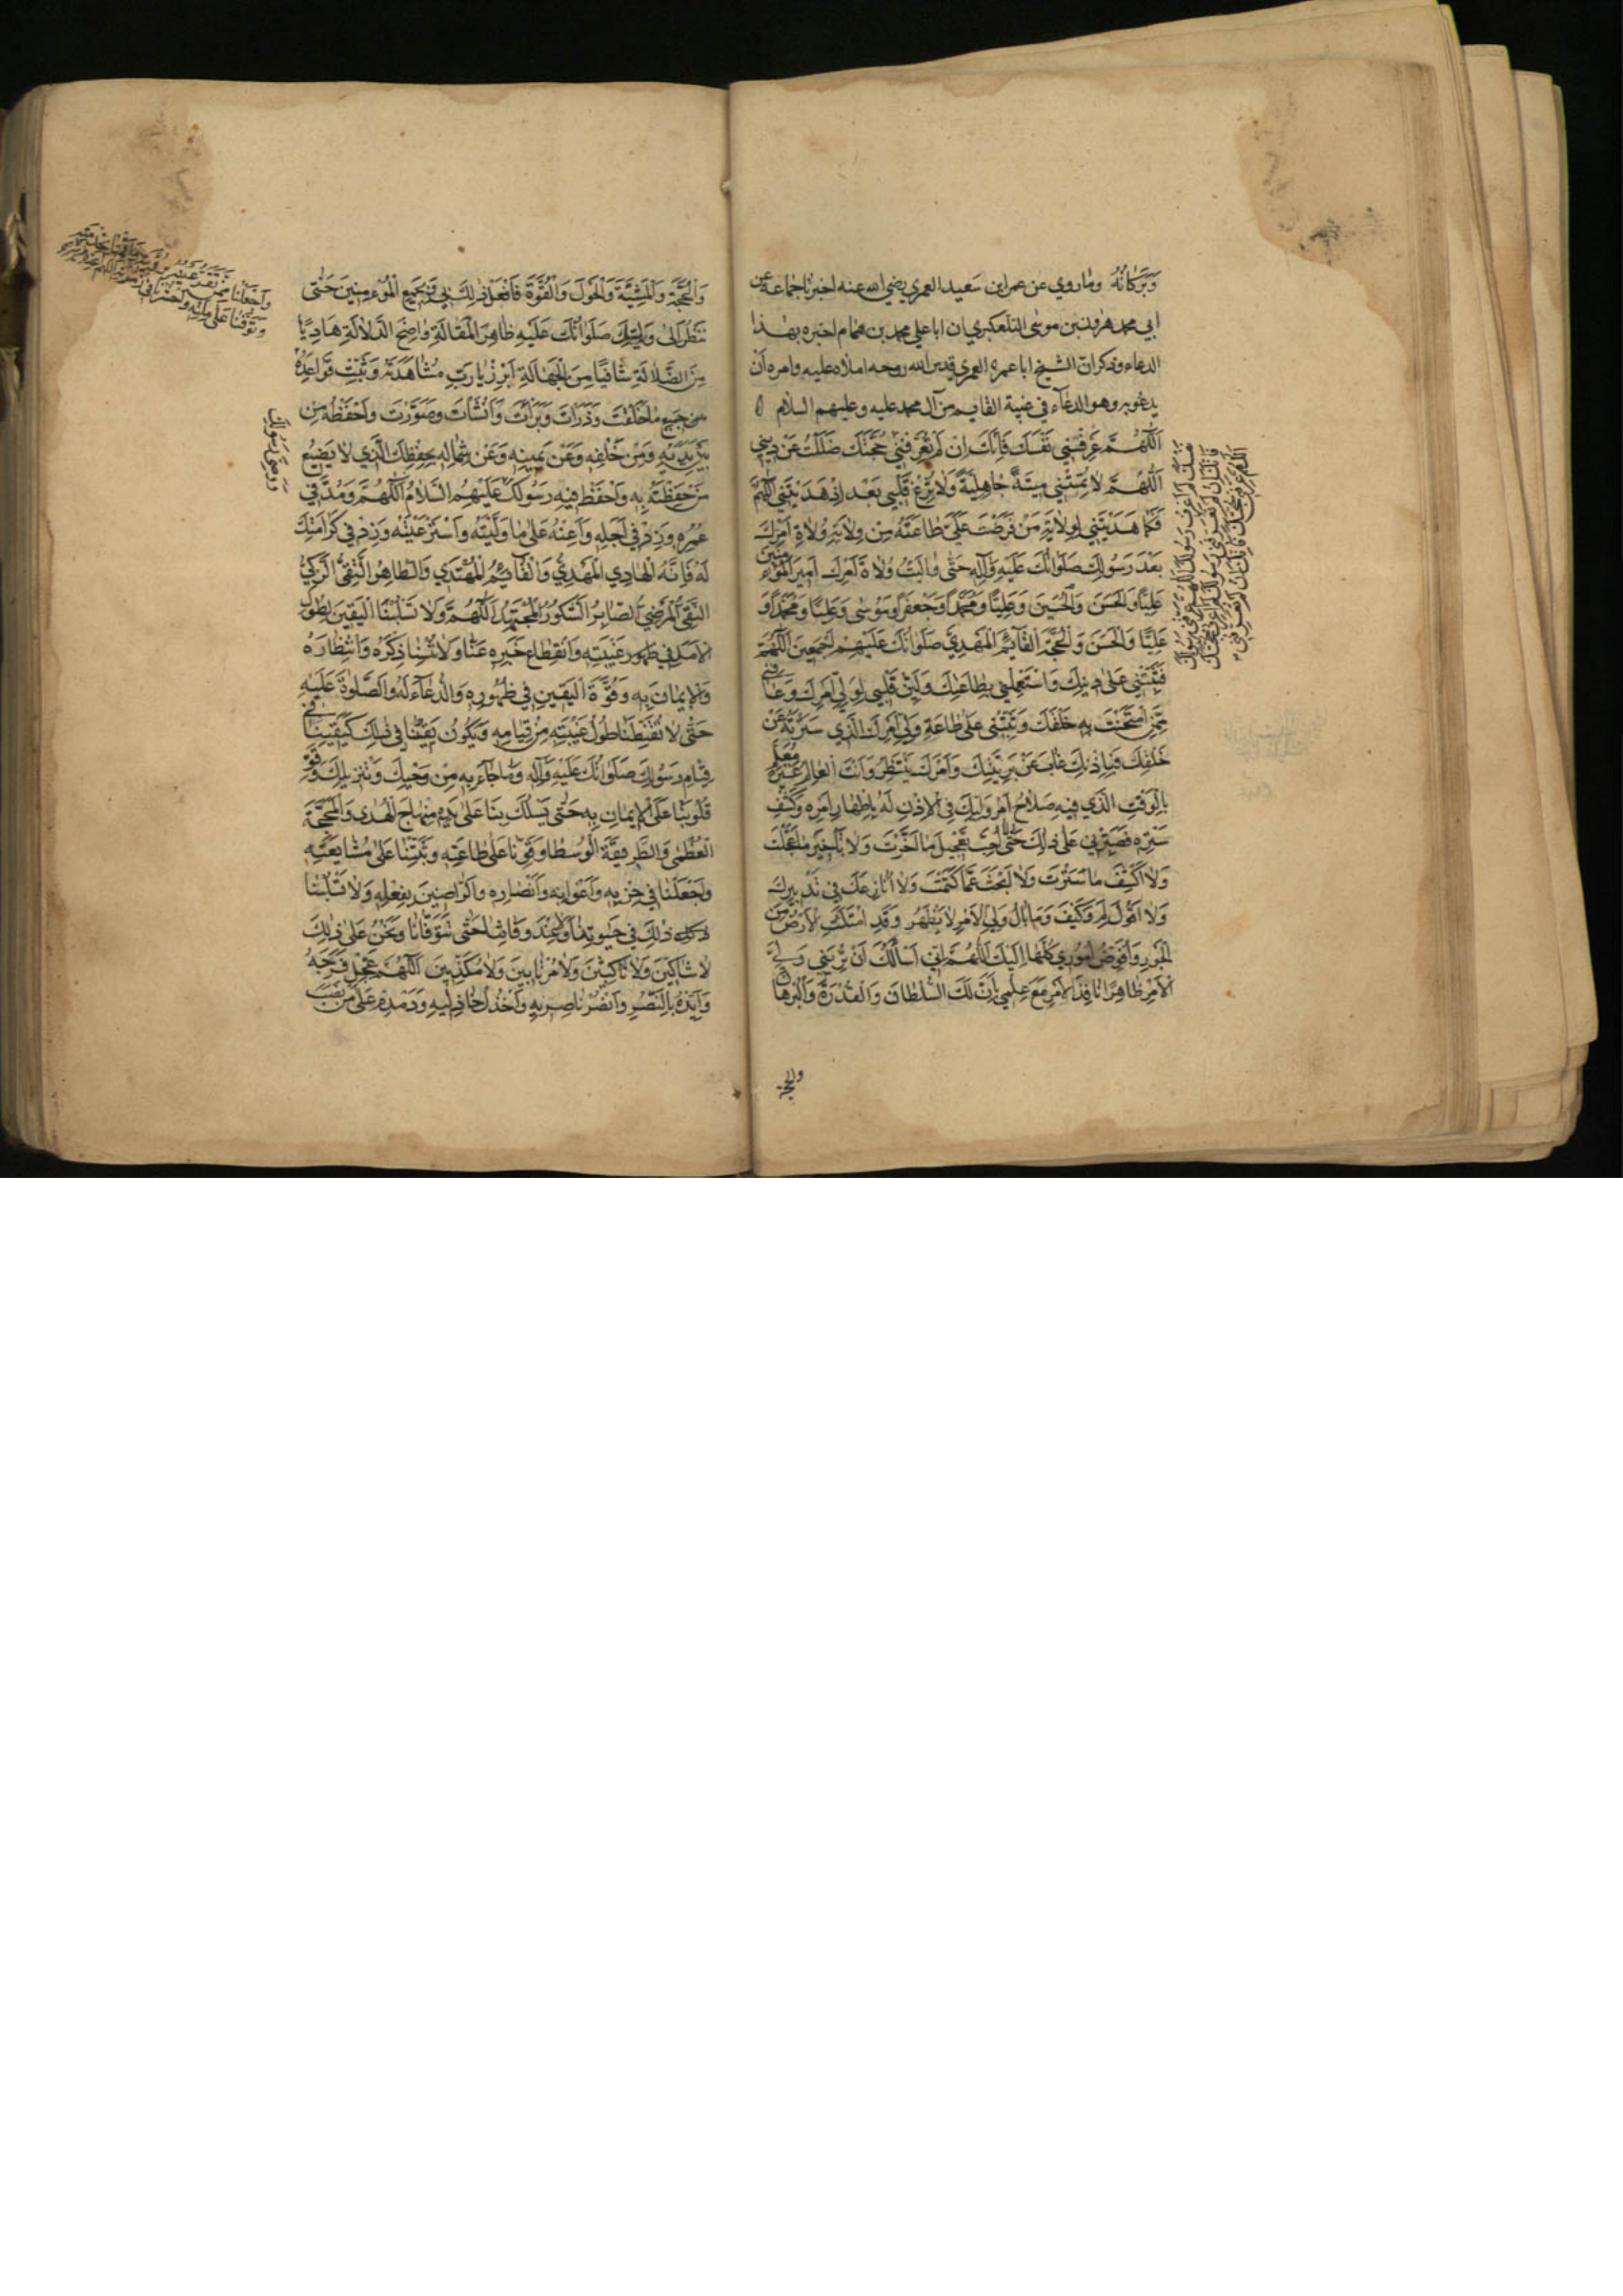 وَبَرَكاتُهُ وماروي عن عمرابن سَعيد العمري رضي الله عنه اخبرنا جماعة عن
ابي محمد هٰرون بن موسَى التلعكبري ان ابا علي محمد بن همام اخبره بهذا
الدعاء وذكر ان الشيخ ابا عمرو العمري قدس الله روحه املاه عليه وامره أن
يدعُوبه وهو الدعاء في غيبة القايم من آل محمد عليه وعليهم السلام
اَللّٰهُمَّ عَرِّفْنِي نَفْسَكَ فَإِنَّكَ اِنْ لَمْ تُعَرِّفْنِي حُجَّتَكَ ضَلَلْتُ عَنْ دِينِي
اَللّٰهُمَّ لاٰ تُمِتْنِي مِيتَةً جٰاهِلِيَّةً وَلاٰ تُزِغْ قَلْبِي بَعْدَ اِذْ هَدَيْتَنِي اَللّٰهُمَّ
فَكَمٰا هَدَيْتَنِي لِوِلاٰيَةِ مَنْ فَرَضْتَ عَلَيَّ طٰاعَتَهُ مِنْ وِلاٰيَةِ وُلاٰةِ اَمْرِكَ
بَعْدَ رَسُولِكَ صَلَوٰاتُكَ عَلَيْهِ وَآلِهِ حَتّٰى وٰالَيْتُ وُلاٰةَ اَمْرِكَ اَمِيرَ الْمُؤْمِنِينَ
عَلِيًّا وَالْحَسَنَ وَالْحُسَيْنَ وَعَلِيًّا وَمُحَمَّدًا وَجَعْفَرًا وَمُوسٰى وَعَلِيًّا وَمُحَمَّدًا وَ
عَلِيًّا وَالْحَسَنَ وَالْحُجَّةَ الْقٰايِمَ الْمَهْدِيَّ صَلَوٰاتُكَ عَلَيْهِمْ اَجْمَعِينَ اَللّٰهُمَّ
فَثَبِّتْنِي عَلٰى دِينِكَ وَاسْتَعْمِلْنِي بِطٰاعَتِكَ وَلَيِّنْ قَلْبِي لِوَلِيِّ اَمْرِكَ وَعٰافِنِي
مِمَّا امْتَحَنْتَ بِهِ خَلْقَكَ وَثَبِّتْنِي عَلٰى طٰاعَةِ وَلِيِّ اَمْرِكَ الَّذِي سَتَرْتَهُ عَنْ
خَلْقِكَ فَبِاِذْنِكَ غٰابَ عَنْ بَرِيَّتِكَ وَاَمْرَكَ يَنْتَظِرُ وَاَنْتَ الْعٰالِمُ غَيْرُ مُعَلَّمٍ
بِالْوَقْتِ الَّذِي فِيهِ صَلاٰحُ اَمْرِ وَلِيِّكَ فِي الْاِذْنِ لَهُ بِاِظْهٰارِ اَمْرِهِ وَكَشْفِ
سَتْرِهِ فَصَبِّرْنِي عَلٰى ذٰلِكَ حَتّٰى لاٰ اُحِبَّ تَعْجِيلَ مٰا اَخَّرْتَ وَلاٰ تَأْخِيرَ مٰا عَجَّلْتَ
وَلاٰ اَكْشِفَ مٰا سَتَرْتَ وَلاٰ اَبْحَثَ عَمّٰا كَتَمْتَ وَلاٰ اُنٰازِعَكَ فِي تَدْبِيرِكَ
وَلاٰ اَقُولَ لِمَ وَكَيْفَ وَمٰا بٰالُ وَلِيِّ الْاَمْرِ لاٰ يَظْهَرُ وَقَدِ امْتَلَأَتِ الْاَرْضُ مِنَ
الْجَوْرِ وَاُفَوِّضُ اُمُورِي كُلَّهٰا اِلَيْكَ اَللّٰهُمَّ اِنِّي اَسْأَلُكَ اَنْ تُرِيَنِي وَلِيَّ
الْاَمْرِ ظٰاهِرًا نٰافِذَ الْاَمْرِ مَعَ عِلْمِي بِاَنَّ لَكَ السُّلْطٰانَ وَالْقُدْرَةَ وَالْبُرْهٰانَ
والحجة
اللهم عرفني حجتك فانك ان لم تعرفني
وَالْحُجَّةَ وَالْمَشِيَّةَ وَالْحَوْلَ وَالْقُوَّةَ فَافْعَلْ ذٰلِكَ بِي وَبِجَمِيعِ الْمُؤْمِنِينَ حَتّٰى
نَنْظُرَ اِلٰى وَلِيِّكَ صَلَوٰاتُكَ عَلَيْهِ ظٰاهِرَ الْمَقٰالَةِ وٰاضِحَ الدَّلاٰلَةِ هٰادِيًا
مِنَ الضَّلاٰلَةِ شٰافِيًا مِنَ الْجَهٰالَةِ اَبْرِزْ يٰا رَبِّ مُشٰاهَدَتَهُ وَثَبِّتْ قَوٰاعِدَهُ
من جَمِيعِ مٰا خَلَقْتَ وَذَرَأْتَ وَبَرَأْتَ وَاَنْشَأْتَ وَصَوَّرْتَ وَاحْفَظْهُ مِنْ
بَيْنِ يَدَيْهِ وَمِنْ خَلْفِهِ وَعَنْ يَمِينِهِ وَعَنْ شِمٰالِهِ بِحِفْظِكَ الَّذِي لاٰ يَضِيعُ
مَنْ حَفِظْتَهُ بِهِ وَاحْفَظْ فِيهِ رَسُولَكَ عَلَيْهِمُ السَّلاٰمُ اَللّٰهُمَّ وَمُدَّ فِي
عُمْرِهِ وَزِدْ فِي اَجَلِهِ وَاَعِنْهُ عَلٰى مٰا وَلَّيْتَهُ وَاسْتَرْعَيْتَهُ وَزِدْ فِي كَرٰامَتِكَ
لَهُ فَاِنَّهُ الْهٰادِي الْمَهْدِيُّ وَالْقٰايِمُ الْمُهْتَدِي وَالطّٰاهِرُ التَّقِيُّ الزَّكِيُّ
النَّقِيُّ الْمَرْضِيُّ الصّٰابِرُ الشَّكُورُ الْمُجْتَهِدُ اَللّٰهُمَّ وَلاٰ تَسْلُبْنَا الْيَقِينَ لِطُولِ
الْاَمَدِ فِي ظهور غَيْبَتِهِ وَانْقِطٰاعِ خَبَرِهِ عَنّٰا وَلاٰ تُنْسِنٰا ذِكْرَهُ وَانْتِظٰارَهُ
وَالْاِيمٰانَ بِهِ وَقُوَّةَ الْيَقِينِ فِي ظُهُورِهِ وَالدُّعٰاءَ لَهُ وَالصَّلٰوةَ عَلَيْهِ
حَتّٰى لاٰ تُقَنِّطَنٰا طُولُ غَيْبَتِهِ مِنْ قِيٰامِهِ وَيَكُونَ يَقِينُنٰا فِي ذٰلِكَ كَيَقِينِنٰا فِي
قِيٰامِ رَسُولِكَ صَلَوٰاتُكَ عَلَيْهِ وَآلِهِ وَمٰا جٰاءَ بِهِ مِنْ وَحْيِكَ وَتَنْزِيلِكَ وَقَوِّ
قُلُوبَنٰا عَلَى الْاِيمٰانِ بِهِ حَتّٰى تَسْلُكَ بِنٰا عَلٰى يَدِهِ مِنْهٰاجَ الْهُدٰى وَالْمَحَجَّةَ
الْعُظْمٰى وَالطَّرِيقَةَ الْوُسْطٰا وَقَوِّنٰا عَلٰى طٰاعَتِهِ وَثَبِّتْنٰا عَلٰى مُشٰايَعَتِهِ
وَاجْعَلْنٰا فِي حِزْبِهِ وَاَعْوٰانِهِ وَاَنْصٰارِهِ وَالرّٰاضِينَ بِفِعْلِهِ وَلاٰ تَسْلُبْنٰا
ذٰلِكَ فِي حَيٰوتِنٰا وَلاٰ عِنْدَ وَفٰاتِنٰا حَتّٰى تَتَوَفّٰانٰا وَنَحْنُ عَلٰى ذٰلِكَ
لاٰ شٰاكِّينَ وَلاٰ نٰاكِثِينَ وَلاٰ مُرْتٰابِينَ وَلاٰ مُكَذِّبِينَ اَللّٰهُمَّ عَجِّلْ فَرَجَهُ
وَاَيِّدْهُ بِالنَّصْرِ وَانْصُرْ نٰاصِرِيهِ وَاخْذُلْ خٰاذِلِيهِ وَدَمْدِمْ عَلٰى مَنْ نَصَبَ
وَوَصِيَّ رَسُولِكَ
وَاجْعَلْنَا مِمَّنْ تَقَرُّ عَيْنُهُ
وَتَوَفَّنَا عَلَى مِلَّتِهِ وَاحْشُرْنَا فِي زُمْرَتِهِ